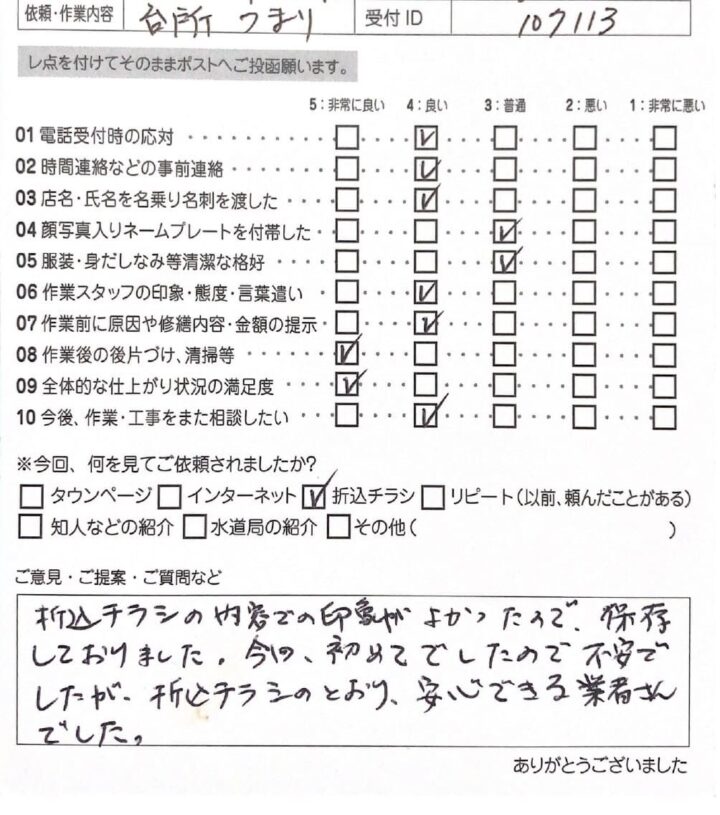 依頼・作業内容 台所 つまり 受付ID 107113
レ点を付けてそのままポストへご投函願います。
5:非常に良い 4:良い 3:普通 2:悪い 1:非常に悪い
01 電話受付時の応対
02 時間連絡などの事前連絡
03 店名・氏名を名乗り名刺を渡した
04 顔写真入りネームプレートを付帯した
05 服装・身だしなみ等清潔な格好
06 作業スタッフの印象・態度・言葉遣い
07 作業前に原因や修繕内容・金額の提示
08 作業後の後片づけ、清掃等
09 全体的な仕上がり状況の満足度
10 今後、作業・工事をまた相談したい
※今回、何を見てご依頼されましたか?
タウンページ インターネット 折込チラシ リピート(以前、頼んだことがある)
知人などの紹介 水道局の紹介 その他( )
ご意見・ご提案・ご質問など
折込チラシの内容での印象がよかったので、保存
しておりました。今回、初めてでしたので不安で
したが、折込チラシのとおり、安心できる業者さん
でした。
ありがとうございました